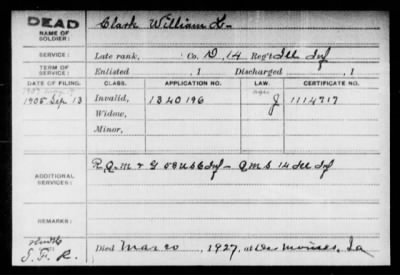 DEAD
NAME OF SOLDIER:
Clark William H-
SERVICE:
Late rank, Co. D, 14 Reg't Ill Inf
TERM OF SERVICE:
Enlisted , 1 Discharged , 1
DATE OF FILING. CLASS. APPLICATION NO. LAW. CERTIFICATE NO.
1905 Sep 13 Invalid, 1340196 J 1114717
Widow,
Minor,
ADDITIONAL SERVICES:
R.Q.M. & 58 U S Inf - Q.M.S 14 Ill Inf
REMARKS:
S. F. R.
Died Mar 20, 1927, at Des Moines, Ia